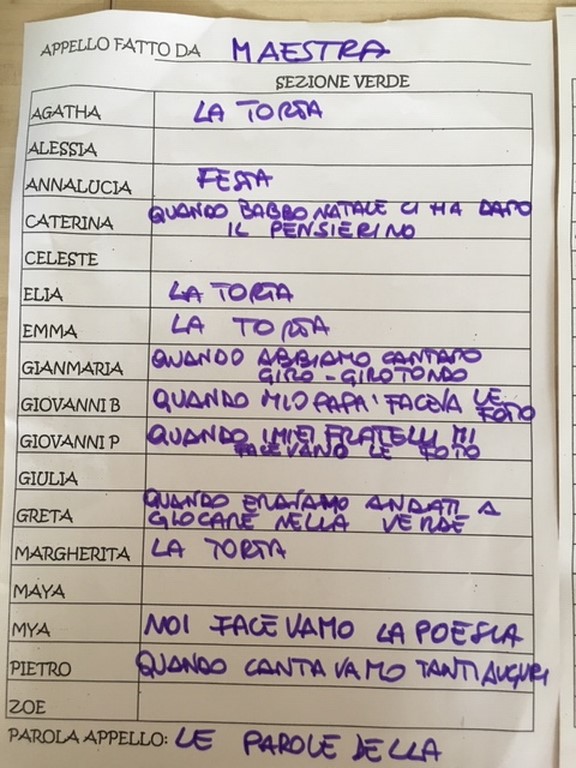 APPELLO FATTO DA MAESTRA
SEZIONE VERDE
AGATHA LA TORTA
ALESSIA
ANNALUCIA FESTA
CATERINA QUANDO BABBO NATALE CI HA DATO
IL PENSIERINO
CELESTE
ELIA LA TORTA
EMMA LA TORTA
GIANMARIA QUANDO ABBIAMO CANTATO
GIRO-GIROTONDO
GIOVANNI B QUANDO MIO PAPA' FACEVA LE
FOTO
GIOVANNI P QUANDO I MIEI FRATELLI MI
FACEVANO LE FOTO
GIULIA
GRETA QUANDO ERAVAMO ANDATI A
GIOCARE NELLA VERDE
MARGHERITA LA TORTA
MAYA
MYA NOI FACEVAMO LA POESIA
PIETRO QUANDO CANTAVAMO TANTI AUGURI
ZOE
PAROLA APPELLO: LE PAROLE DELLA